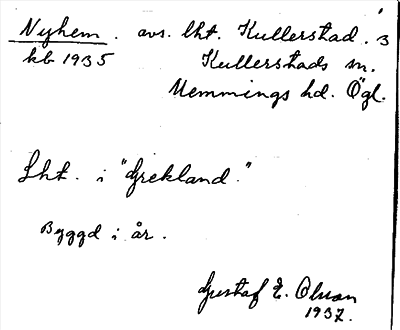 Nyhem. avs. lht. Kullerstad. 3
kb 1935 Kullerstads sn.
Memmings hd. Ögl.
Lht. i "Grekland."
Byggd i år.
Gustaf E. Olsson
1937.